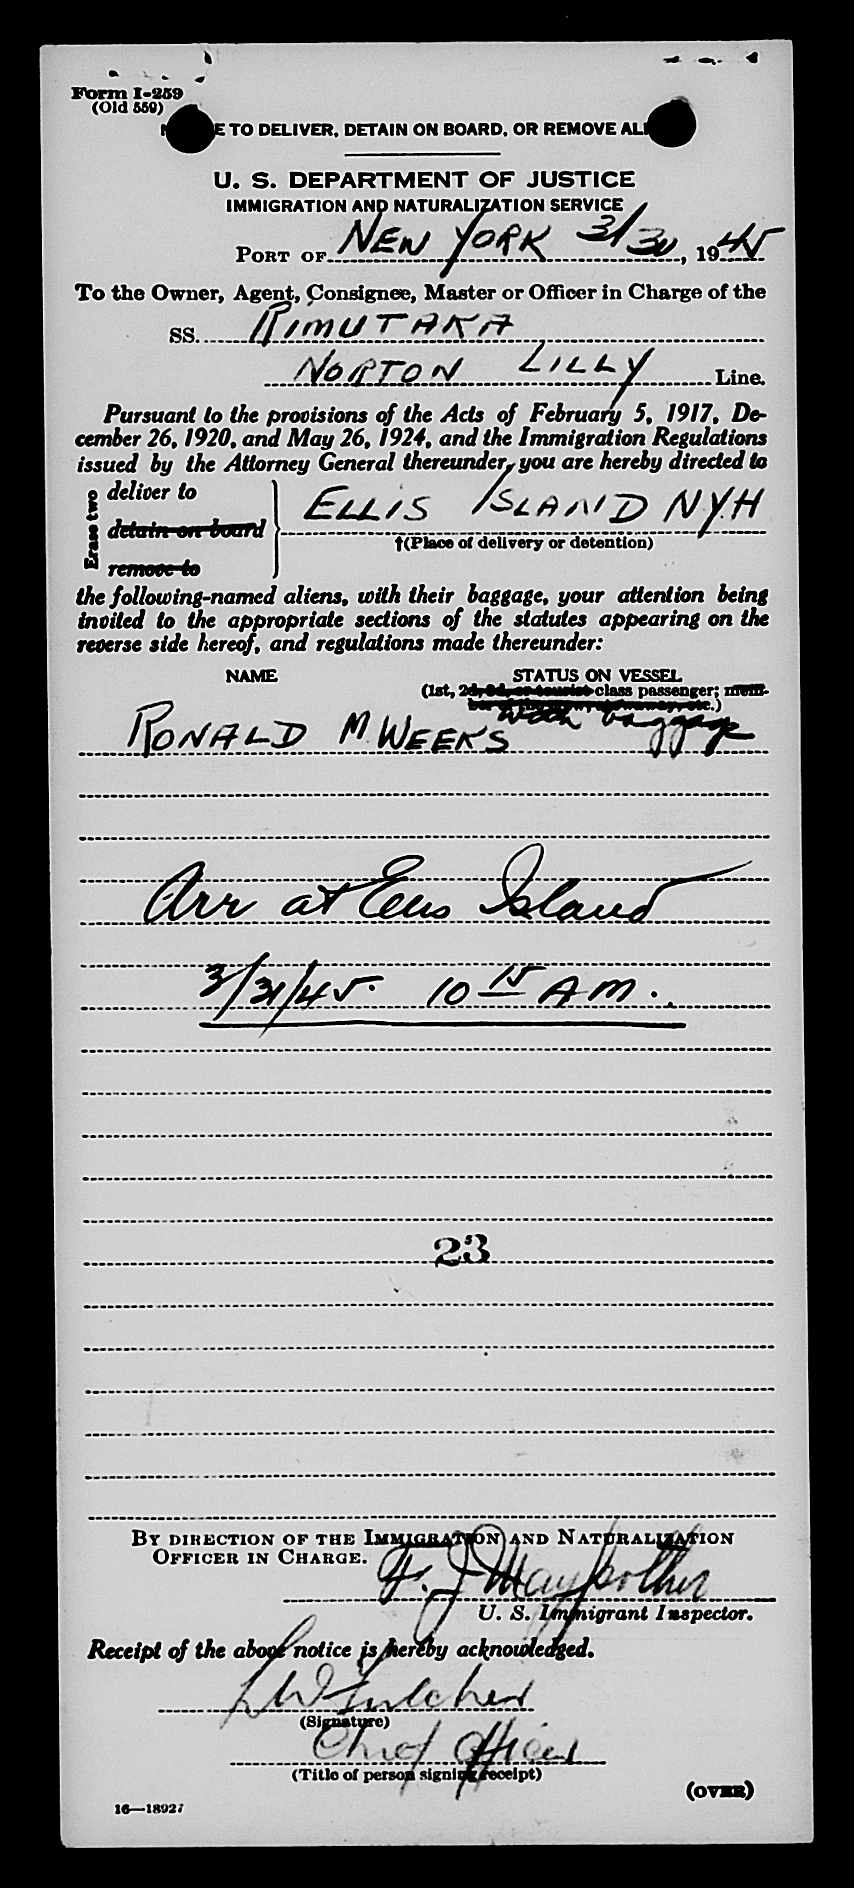 Form I-259
(Old 559)
E TO DELIVER, DETAIN ON BOARD, OR REMOVE
U. S. DEPARTMENT OF JUSTICE
IMMIGRATION AND NATURALIZATION SERVICE
PORT OF NEW YORK 3/30, 1945
To the Owner, Agent, Consignee, Master or Officer in Charge of the
SS. RIMUTAKA
NORTON LILLY Line.
Pursuant to the provisions of the Acts of February 5, 1917, De-
cember 26, 1920, and May 26, 1924, and the Immigration Regulations
issued by the Attorney General thereunder, you are hereby directed to
Erase two
deliver to
detain on board
remove to
ELLIS ISLAND NYH
†(Place of delivery or detention)
the following-named aliens, with their baggage, your attention being
invited to the appropriate sections of the statutes appearing on the
reverse side hereof, and regulations made thereunder:
NAME STATUS ON VESSEL
(1st, 2d, 3d, or tourist class passenger; mem-
ber of the crew, stowaway, etc.)
RONALD M. WEEKS with baggage
Arr at Ellis Island
3/31/45. 10 15 AM.
23
BY DIRECTION OF THE IMMIGRATION AND NATURALIZATION
OFFICER IN CHARGE.
U. S. Immigrant Inspector.
Receipt of the above notice is hereby acknowledged.
(Signature)
Chief Officer
(Title of person signing receipt)
(OVER)
16—18927